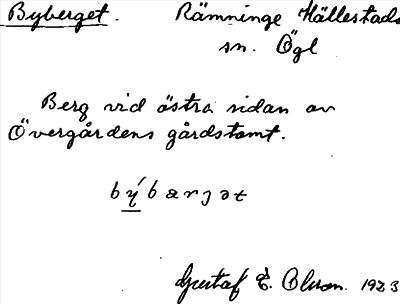 Byberget. Rämninge Hällestads
sn. Ögl
Berg vid östra sidan av
Övergårdens gårdstomt.
býbærjət
Gustaf E. Olsson. 1923